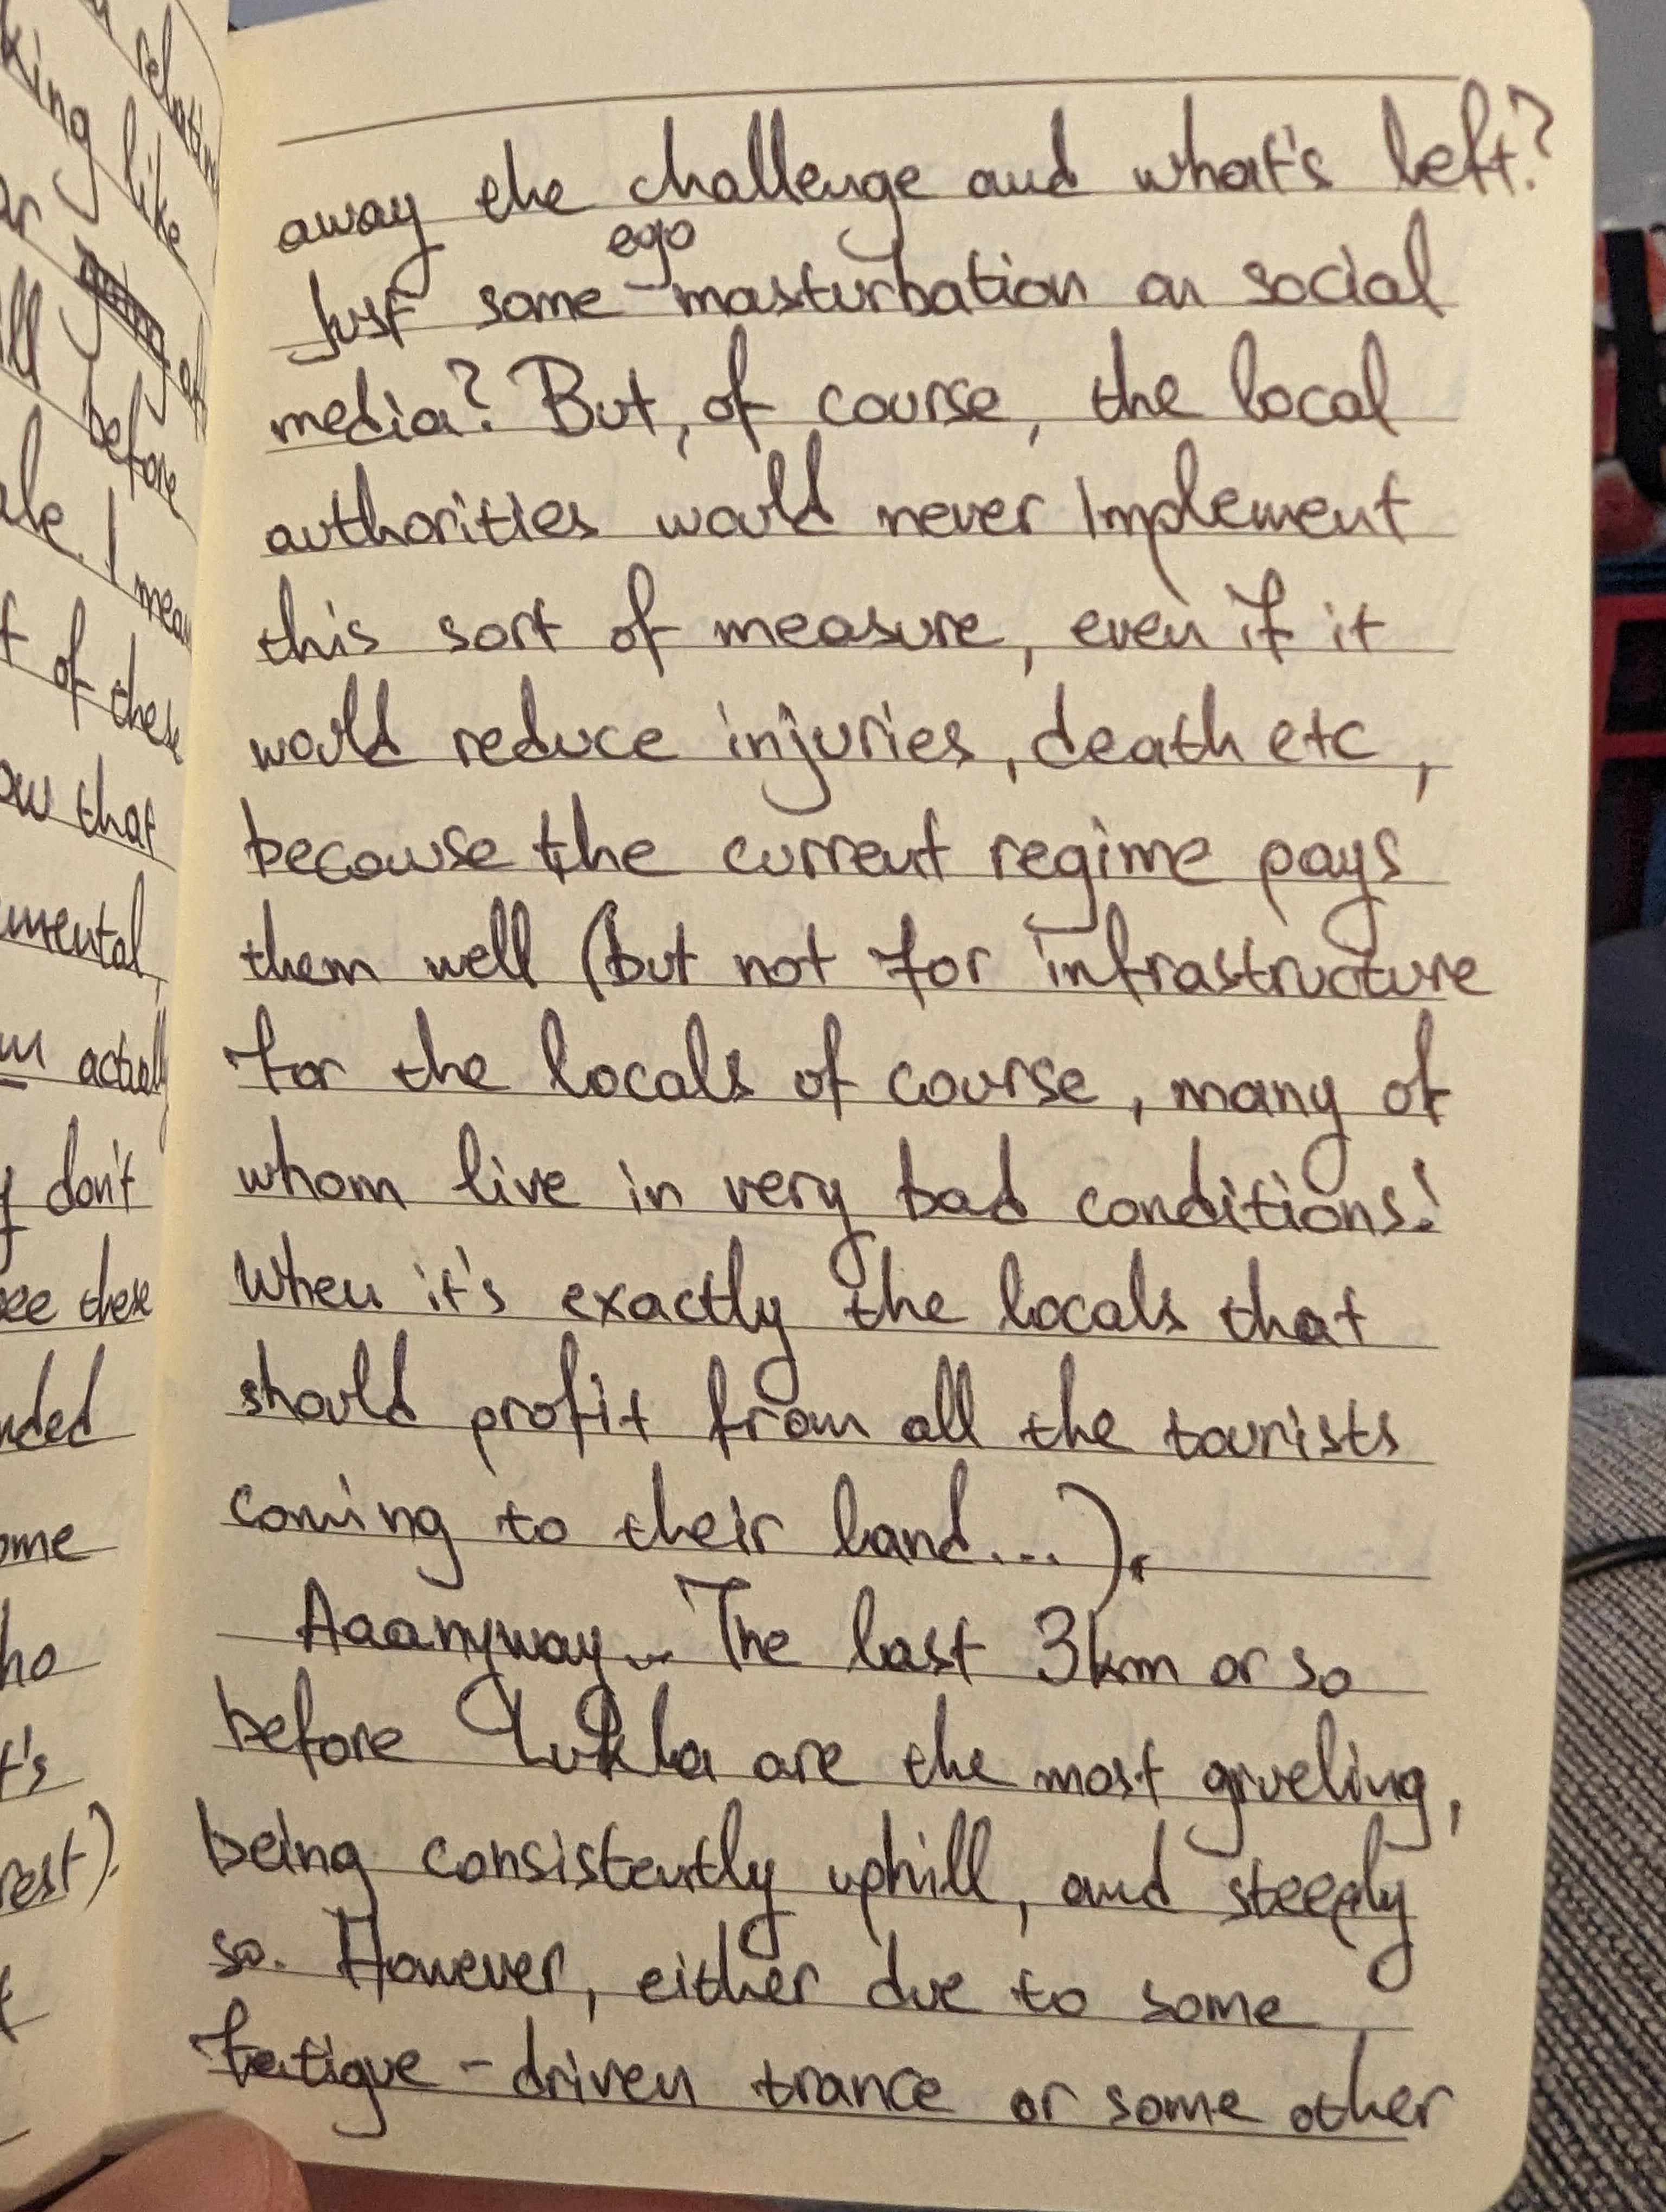 relating
king like
all
before
I mean
of these
ow that
mental,
actually
don't
see these
nded
ome
ho
t's
rest).
away the challenge and what's left?
ego
Just some - masturbation on social
media? But, of course, the local
authorities would never implement
this sort of measure, even if it
would reduce injuries, death etc,
becouse the current regime pays
them well (but not for infrastructure
for the locals of course, many of
whom live in very bad conditions!
When it's exactly the locals that
should profit from all the tourists
coming to their land...).
Aaanyway... The last 3km or so
before Lukla are the most grueling,
being consistently uphill, and steeply
so. However, either due to some
fatigue-driven trance or some other